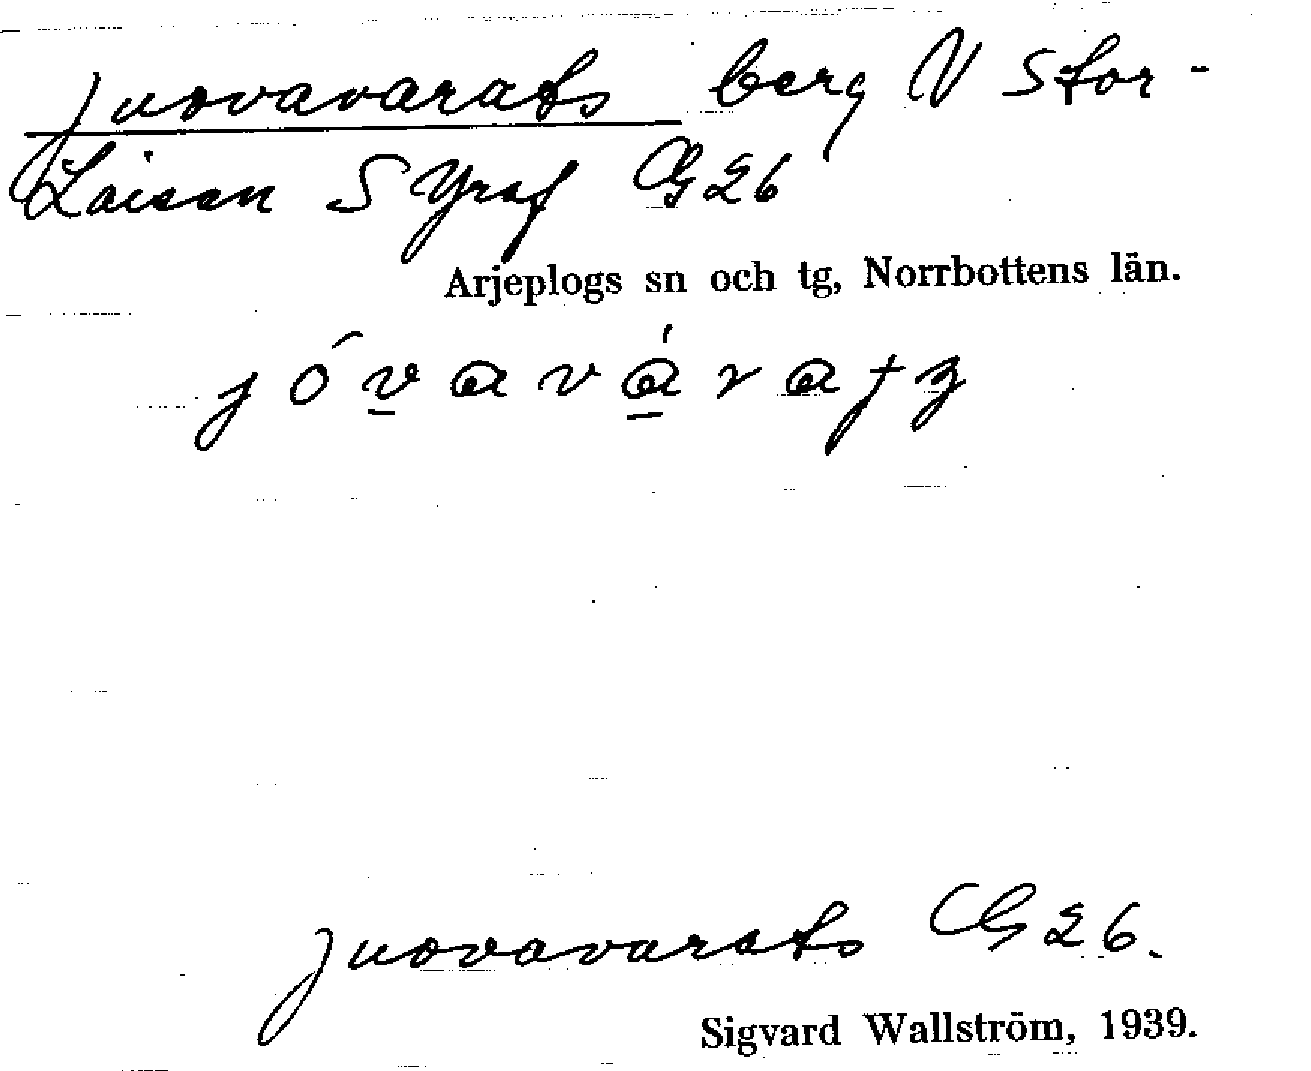 Juovavarats berg V Stor-
Laisan S Yraf G26
Arjeplogs sn och tg, Norrbottens län.
jóv̲avá̲ratz
Juovavarats G26.
Sigvard Wallström, 1939.